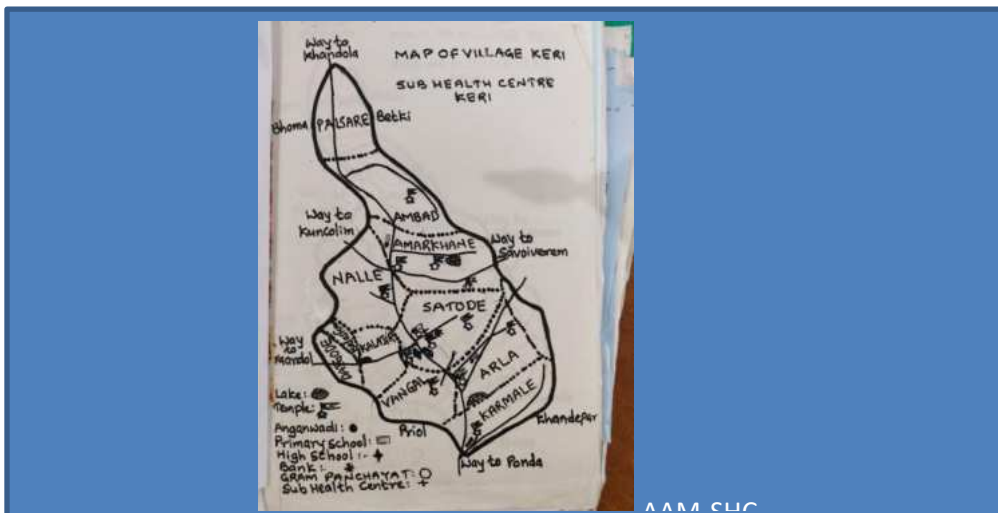 Way to
Khandola
MAP OF VILLAGE KERI
SUB HEALTH CENTRE
KERI
Bhoma PALSARE Betki
AMBAD
Way to
Kuncolim
AMARKHANE
Way to
Savoiverem
NALLE
SATODE
Way to
Mardol
VANGAL
ARLA
KARMALE
Khandepar
Priol
Way to Ponda
Lake:
Temple:
Anganwadi:
Primary School:
High School:-
Bank:
GRAM PANCHAYAT:
Sub Health Centre:
AAM-SHC